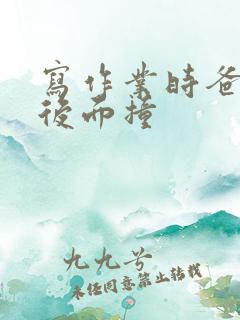 寫作業時爸
後面撞
九九兮
未經同意禁止轉載